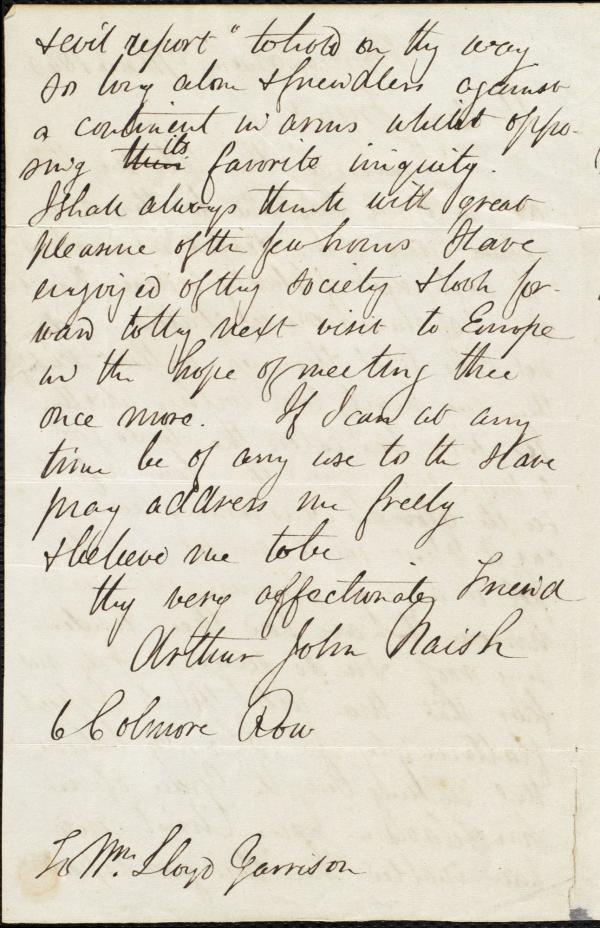 & evil report" to hold on thy way
so long alone & friendless against
a continent in arms whilst oppo-
sing their its favorite iniquity.
I shall always think with great
pleasure of the few hours I have
enjoyed of thy society & look for-
ward to thy next visit to Europe
in the hope of meeting thee
once more. If I can at any
time be of any use to the slave
pray address me freely
& believe me to be
thy very affectionate Friend
Arthur John Naish
6 Colmore Row
To Wm. Lloyd Garrison